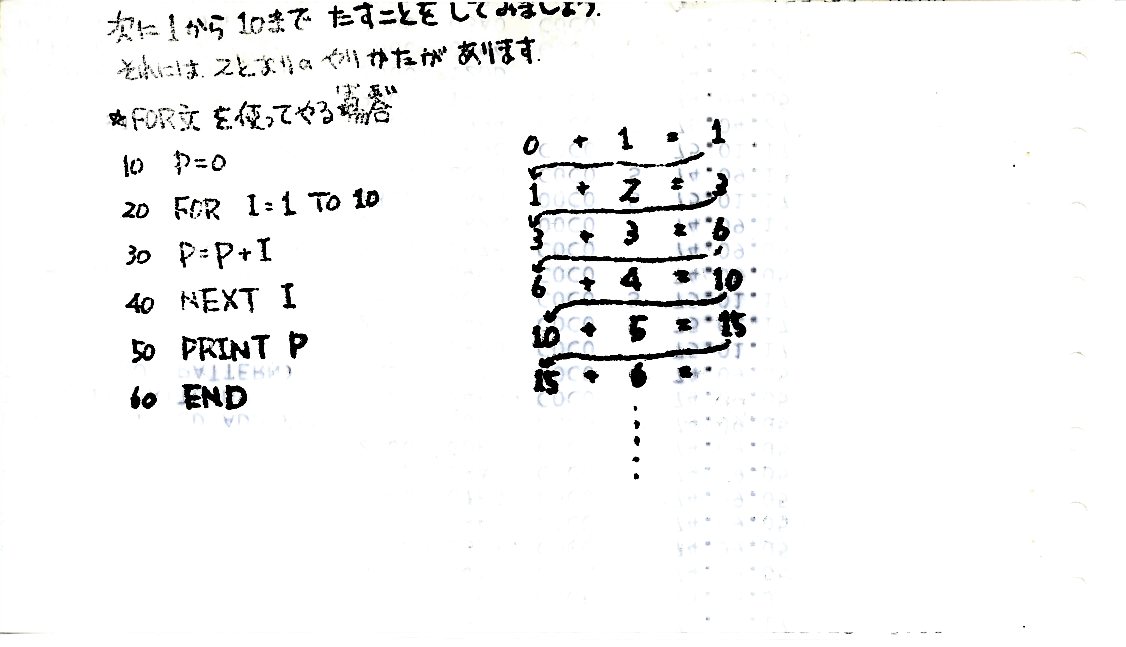 次に1から10まで たすことをしてみましょう.
それには 2とおりの やりかたがあります.
☆FOR文を使ってやる場合
ばあい
10 P=0
20 FOR I=1 TO 10
30 P=P+I
40 NEXT I
50 PRINT P
60 END
0 + 1 = 1
1 + 2 = 3
3 + 3 = 6
6 + 4 = 10
10 + 5 = 15
15 + 6 =